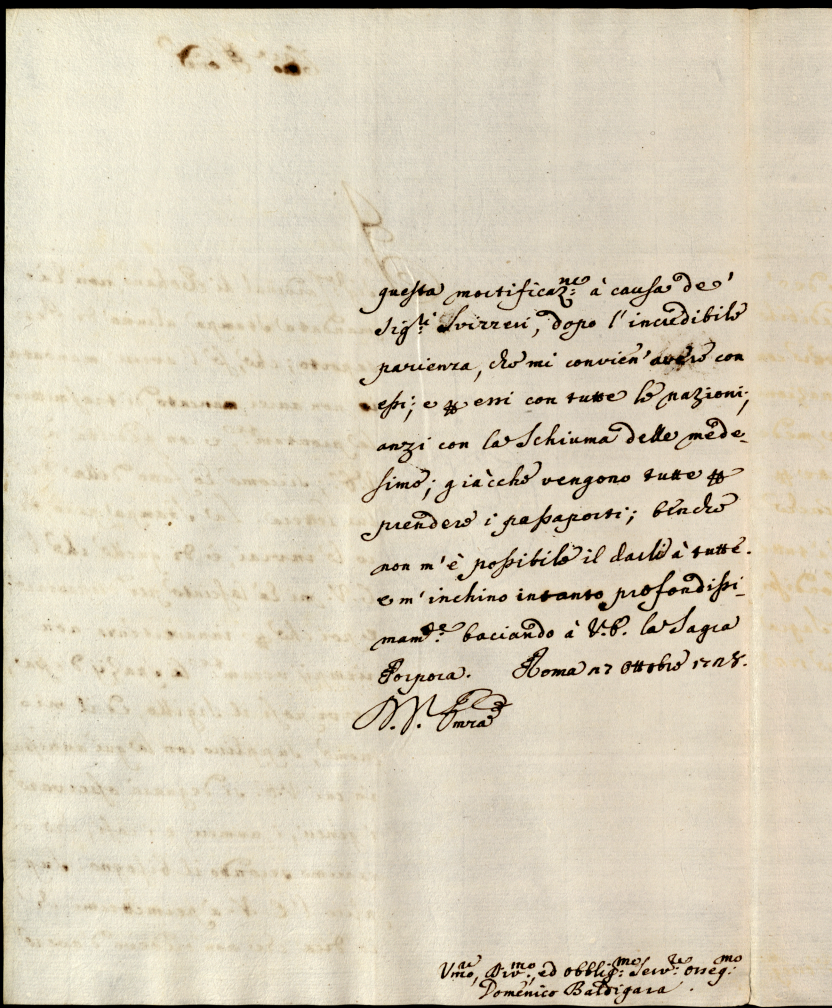 questa mortificaz.ne à causa de'
Sig.ri Svizzeri, dopo l'incredibile
pazienza, che mi convien'avere con
essi; e ꝑ essi con tutte le nazioni;
anzi con la Schiuma delle mede-
sime; giàcche vengono tutte ꝑ
prendere i passaporti; benche
non m'è possibile il darli à tutte.
e m'inchino intanto profondissi-
mam.te baciando à V.E. la Sagra
Porpora. Roma 27 Ottobre 1728.
Emza
Vmo, Div.mo, ed obblig.mo Serv.re osseq.mo
Domenico Baldigara.